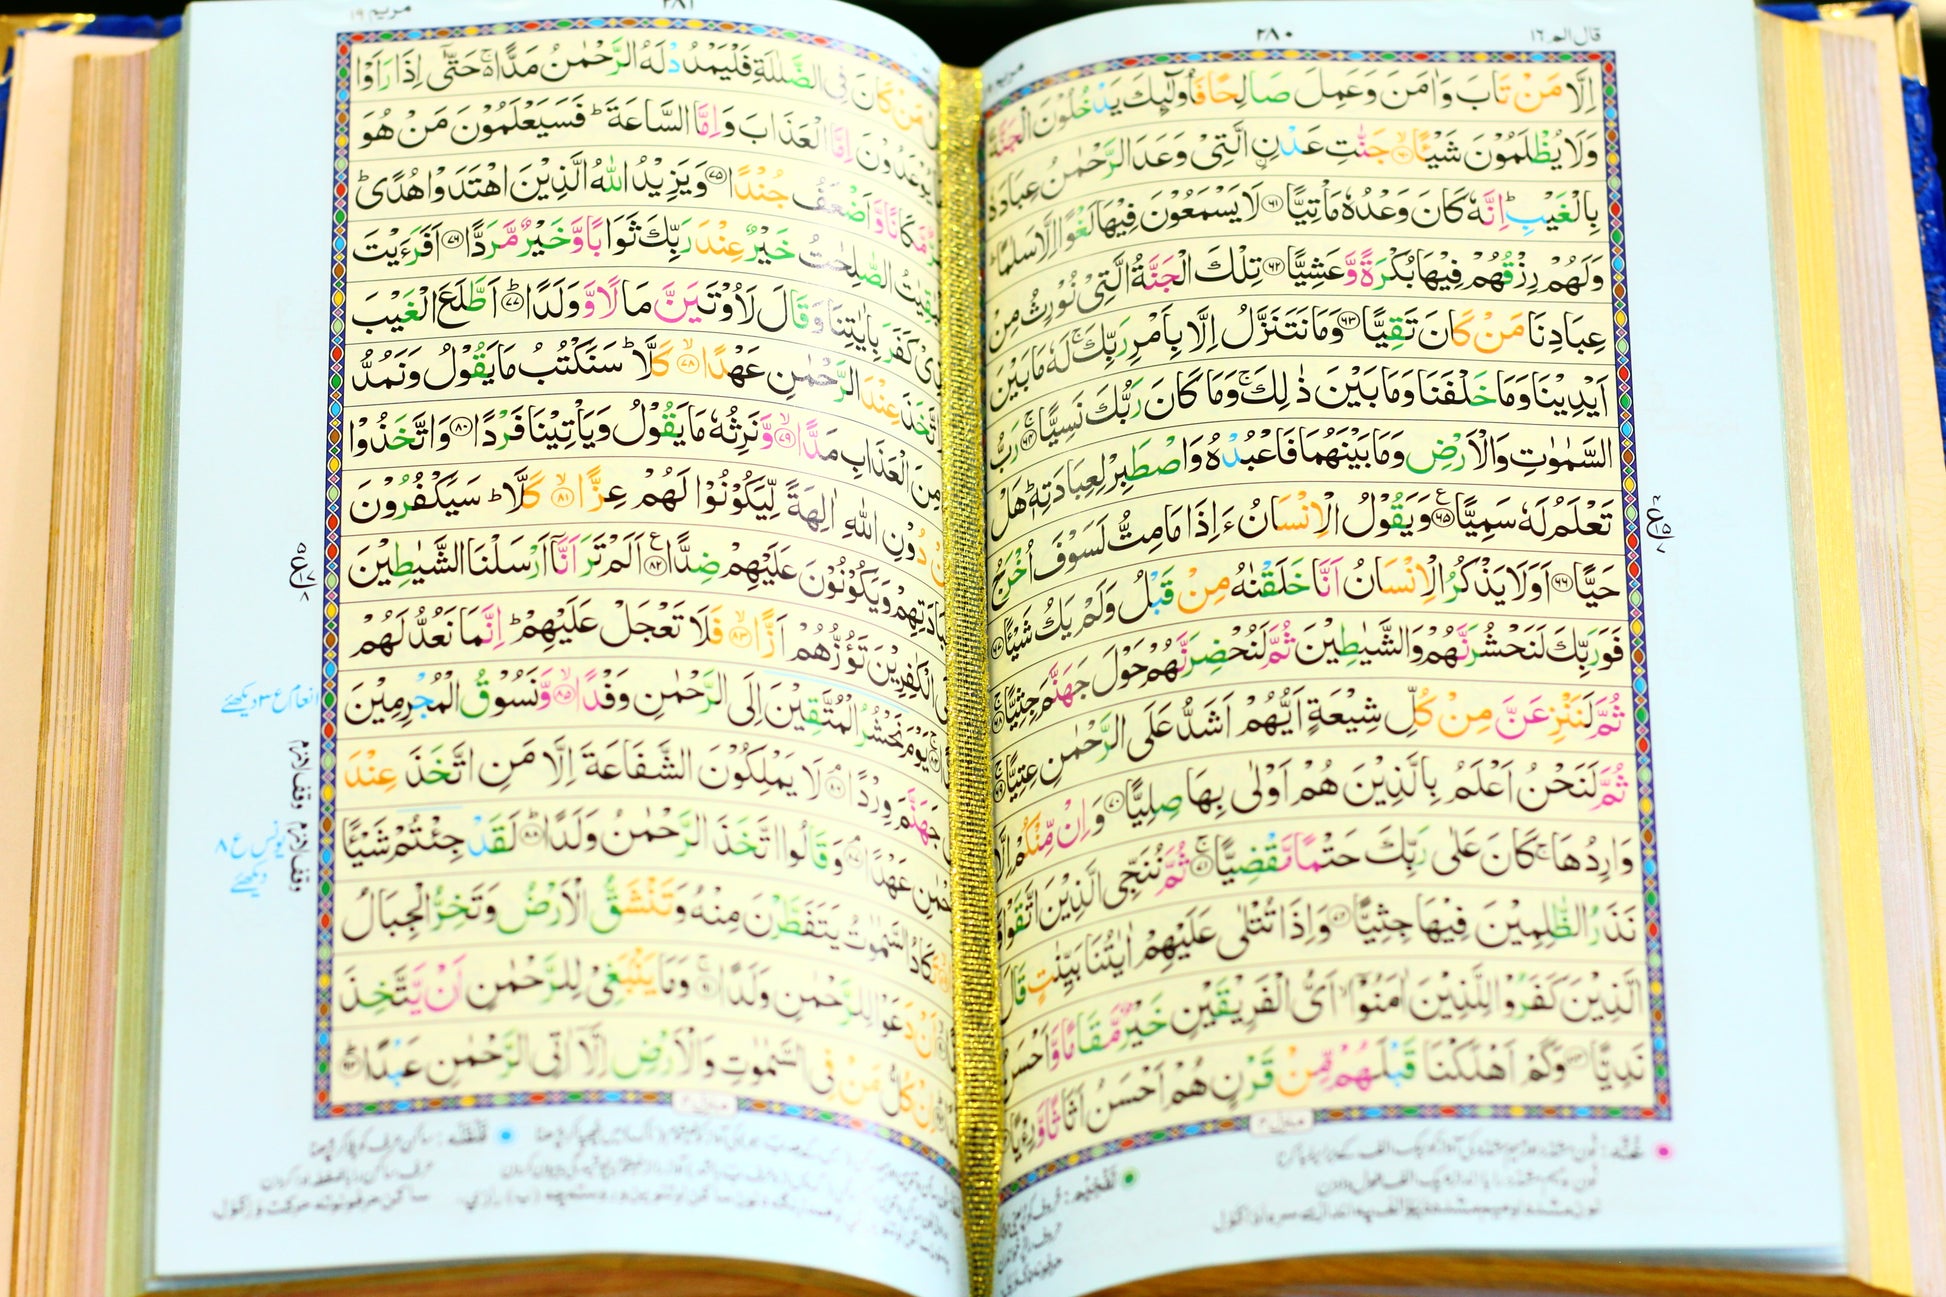 قال الم ١٦
٢٨٠
مريم
اِلَّا مَنْ تَابَ وَاٰمَنَ وَعَمِلَ صَالِحًا فَاُولٰٓئِكَ يَدْخُلُوْنَ الْجَنَّةَ
وَلَا يُظْلَمُوْنَ شَيْـًٔا ۙ﴿٦٠﴾ جَنّٰتِ عَدْنِ ۨالَّتِيْ وَعَدَ الرَّحْمٰنُ عِبَادَهٗ
بِالْغَيْبِ ؕ اِنَّهٗ كَانَ وَعْدُهٗ مَاْتِيًّا ﴿٦١﴾ لَا يَسْمَعُوْنَ فِيْهَا لَغْوًا اِلَّا سَلٰمًا ؕ
وَلَهُمْ رِزْقُهُمْ فِيْهَا بُكْرَةً وَّعَشِيًّا ﴿٦٢﴾ تِلْكَ الْجَنَّةُ الَّتِيْ نُوْرِثُ مِنْ
عِبَادِنَا مَنْ كَانَ تَقِيًّا ﴿٦٣﴾ وَمَا نَتَنَزَّلُ اِلَّا بِاَمْرِ رَبِّكَ ۚ لَهٗ مَا بَيْنَ
اَيْدِيْنَا وَمَا خَلْفَنَا وَمَا بَيْنَ ذٰلِكَ ۚ وَمَا كَانَ رَبُّكَ نَسِيًّا ۚ﴿٦٤﴾ رَبُّ
السَّمٰوٰتِ وَالْاَرْضِ وَمَا بَيْنَهُمَا فَاعْبُدْهُ وَاصْطَبِرْ لِعِبَادَتِهٖ ؕ هَلْ
تَعْلَمُ لَهٗ سَمِيًّا ﴿٦٥﴾ وَيَقُوْلُ الْاِنْسَانُ ءَاِذَا مَا مِتُّ لَسَوْفَ اُخْرَجُ
حَيًّا ﴿٦٦﴾ اَوَلَا يَذْكُرُ الْاِنْسَانُ اَنَّا خَلَقْنٰهُ مِنْ قَبْلُ وَلَمْ يَكُ شَيْـًٔا ﴿٦٧﴾
فَوَرَبِّكَ لَنَحْشُرَنَّهُمْ وَالشَّيٰطِيْنَ ثُمَّ لَنُحْضِرَنَّهُمْ حَوْلَ جَهَنَّمَ جِثِيًّا ۚ﴿٦٨﴾
ثُمَّ لَنَنْزِعَنَّ مِنْ كُلِّ شِيْعَةٍ اَيُّهُمْ اَشَدُّ عَلَى الرَّحْمٰنِ عِتِيًّا ۚ﴿٦٩﴾
ثُمَّ لَنَحْنُ اَعْلَمُ بِالَّذِيْنَ هُمْ اَوْلٰى بِهَا صِلِيًّا ﴿٧٠﴾ وَاِنْ مِّنْكُمْ اِلَّا
وَارِدُهَا ۚ كَانَ عَلٰى رَبِّكَ حَتْمًا مَّقْضِيًّا ۚ﴿٧١﴾ ثُمَّ نُنَجِّي الَّذِيْنَ اتَّقَوْا وَّ
نَذَرُ الظّٰلِمِيْنَ فِيْهَا جِثِيًّا ﴿٧٢﴾ وَاِذَا تُتْلٰى عَلَيْهِمْ اٰيٰتُنَا بَيِّنٰتٍ قَالَ
الَّذِيْنَ كَفَرُوْا لِلَّذِيْنَ اٰمَنُوْۤا ۙ اَيُّ الْفَرِيْقَيْنِ خَيْرٌ مَّقَامًا وَّاَحْسَنُ
نَدِيًّا ﴿٧٣﴾ وَكَمْ اَهْلَكْنَا قَبْلَهُمْ مِّنْ قَرْنٍ هُمْ اَحْسَنُ اَثَاثًا وَّرِءْيًا
منزل ٤
مريم ١٩
٢٨١
مَنْ كَانَ فِي الضَّلٰلَةِ فَلْيَمْدُدْ لَهُ الرَّحْمٰنُ مَدًّا ۚ حَتّٰٓى اِذَا رَاَوْا
يُوْعَدُوْنَ اِمَّا الْعَذَابَ وَاِمَّا السَّاعَةَ ؕ فَسَيَعْلَمُوْنَ مَنْ هُوَ
شَرٌّ مَّكَانًا وَّاَضْعَفُ جُنْدًا ﴿٧٥﴾ وَيَزِيْدُ اللّٰهُ الَّذِيْنَ اهْتَدَوْا هُدًى ؕ
الصّٰلِحٰتُ خَيْرٌ عِنْدَ رَبِّكَ ثَوَابًا وَّخَيْرٌ مَّرَدًّا ﴿٧٦﴾ اَفَرَءَيْتَ
كَفَرَ بِاٰيٰتِنَا وَقَالَ لَاُوْتَيَنَّ مَالًا وَّوَلَدًا ؕ﴿٧٧﴾ اَطَّلَعَ الْغَيْبَ
اتَّخَذَ عِنْدَ الرَّحْمٰنِ عَهْدًا ۙ﴿٧٨﴾ كَلَّا ؕ سَنَكْتُبُ مَا يَقُوْلُ وَنَمُدُّ
مِنَ الْعَذَابِ مَدًّا ۙ﴿٧٩﴾ وَّنَرِثُهٗ مَا يَقُوْلُ وَيَاْتِيْنَا فَرْدًا ﴿٨٠﴾ وَاتَّخَذُوْا
دُوْنِ اللّٰهِ اٰلِهَةً لِّيَكُوْنُوْا لَهُمْ عِزًّا ۙ﴿٨١﴾ كَلَّا ؕ سَيَكْفُرُوْنَ
وَيَكُوْنُوْنَ عَلَيْهِمْ ضِدًّا ﴿٨٢﴾ اَلَمْ تَرَ اَنَّاۤ اَرْسَلْنَا الشَّيٰطِيْنَ
الْكٰفِرِيْنَ تَؤُزُّهُمْ اَزًّا ۙ﴿٨٣﴾ فَلَا تَعْجَلْ عَلَيْهِمْ ؕ اِنَّمَا نَعُدُّ لَهُمْ
يَوْمَ نَحْشُرُ الْمُتَّقِيْنَ اِلَى الرَّحْمٰنِ وَفْدًا ۙ﴿٨٥﴾ وَّنَسُوْقُ الْمُجْرِمِيْنَ
جَهَنَّمَ وِرْدًا ۘ﴿٨٦﴾ لَا يَمْلِكُوْنَ الشَّفَاعَةَ اِلَّا مَنِ اتَّخَذَ عِنْدَ
عَهْدًا ۘ﴿٨٧﴾ وَقَالُوا اتَّخَذَ الرَّحْمٰنُ وَلَدًا ؕ﴿٨٨﴾ لَقَدْ جِئْتُمْ شَيْـًٔا
تَكَادُ السَّمٰوٰتُ يَتَفَطَّرْنَ مِنْهُ وَتَنْشَقُّ الْاَرْضُ وَتَخِرُّ الْجِبَالُ
اَنْ دَعَوْا لِلرَّحْمٰنِ وَلَدًا ۚ﴿٩١﴾ وَمَا يَنْۢبَغِيْ لِلرَّحْمٰنِ اَنْ يَّتَّخِذَ
اِنْ كُلُّ مَنْ فِي السَّمٰوٰتِ وَالْاَرْضِ اِلَّاۤ اٰتِي الرَّحْمٰنِ عَبْدًا ؕ﴿٩٣﴾
انعام ع ٣ دیکھئے
وقف لازم
وقف لازم
یونس ع ٨
دیکھئے
منزل ٤